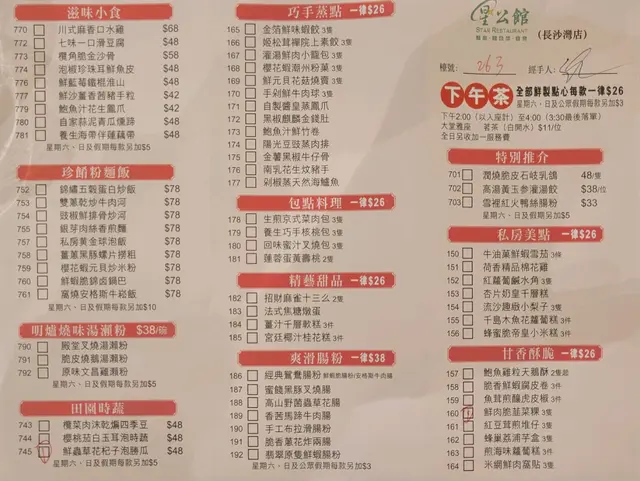 滋味小食
770 川式麻香口水雞 $68
772 七味一口滑豆腐 $48
773 欖角脆金沙骨 $58
774 泡椒珍珠耳鮮魚皮 $48
776 鮮藍莓鐵棍淮山 $48
777 鮮沙薑香茜豬手粒 $42
779 鮑魚汁花生鳳爪 $42
780 自家蒜泥青瓜燻蹄 $48
782 養生海帶伴蓮藕帶 $48
星期六、日及假期每款另加$5
珍餚粉麵飯
752 錦繡五穀蛋白炒飯 $78
753 雙蔥乾炒牛肉河 $78
754 豉椒鮮排骨炒河 $78
755 銀芽肉絲香煎麵 $78
757 私房黃金球泡飯 $78
758 薑蔥黑豚螺片撈粗 $78
759 櫻花蝦元貝炒米粉 $78
760 鮮蝦脆錦滷鍋巴 $78
761 窩燒安格斯牛崧飯 $78
星期六、日及假期每款另加$10
明爐燒味湯瀨粉 $38/碗
790 殿堂叉燒湯瀨粉
791 脆皮燒鵝湯瀨粉
792 原味文昌雞瀨粉
星期六、日及假期每款另加$5
田園時蔬
743 欖菜肉沫乾煸四季豆 $48
744 櫻桃茄白玉耳泡時蔬 $48
745 鮮蟲草花杞子泡勝瓜 $48
星期六、日及假期每款另加$5
巧手蒸點 一律$26
165 金箔鮮蝦餃 3隻
166 姬松茸襌院上素餃 3隻
167 灌湯鮮肉小籠包 3隻
168 櫻花蝦潮州粉菓 3隻
169 鮮元貝花菇燒賣 3隻
170 手剁鮮牛肉球 3隻
171 自製醬皇蒸鳳爪
172 黑椒麒麟金錢肚
173 鮑魚汁鮮竹卷
174 陽光豆豉蒸肉排
175 金薯黑椒牛仔骨
176 南乳花生炆豬手
177 剁椒蒸天然海鱸魚
包點料理 一律$26
178 生煎京式菜肉包 3隻
179 養生巧手核桃包 3隻
180 回味蜜汁叉燒包 3隻
181 蓮蓉蛋黃壽桃 2隻
精藝甜品 一律$26
182 招財麻雀十三么 2隻
183 法式焦糖燉蛋
184 薑汁千層軟糕 3件
185 宮廷椰汁桂花糕 3件
爽滑腸粉 一律$38
186 經典鴛鴦腸粉 鮮蝦脆腸粉/安格斯牛肉腸
187 蜜餞黑豚叉燒腸
188 高山野菌蟲草花腸
189 香茜馬蹄牛肉腸
190 手工布拉滑腸粉
191 脆香蔥花炸兩腸
192 翡翠原隻鮮蝦腸粉
星期六、日及公眾假期每款另加$3
星公館
STAR RESTAURANT
(長沙灣店)
檯號: 263 經手人:
下午茶 全部鮮製點心每款一律$26
星期六、日及公眾假期每款另加$3
下午2:00 (以入座計) 至4:00 (3:30最後落單)
大堂雅座 茗茶 (白開水) $11/位
全日另收加一服務費
特別推介
701 潤燒脆皮石岐乳鴿 48/隻
702 高湯黃玉參灌湯餃 $38/位
703 雪裡紅火鴨絲腸粉 $33
星期六、日及假期每款另加$5
私房美點 一律$26
150 牛油菓鮮蝦雪茄 3條
151 荷香精品棉花雞
152 紅蘿蔔鹹水角 3隻
153 杏片奶皇千層糕
154 流沙趣緻小梨子 3隻
155 千島木魚花蘿蔔糕 3件
156 蜂蜜脆帝皇小米糕 3件
甘香酥脆 一律$26
157 鮑魚雞粒天鵝酥 2隻起
158 脆香鮮蝦腐皮卷 3件
159 魚茸煎釀虎皮椒 3件
160 鮮肉脆韮菜粿 3隻
161 紅豆茸煎堆仔 3隻
162 蜂巢荔浦芋盒 3隻
163 煎海味蘿蔔糕 3件
164 米網鮮肉窩貼 3隻